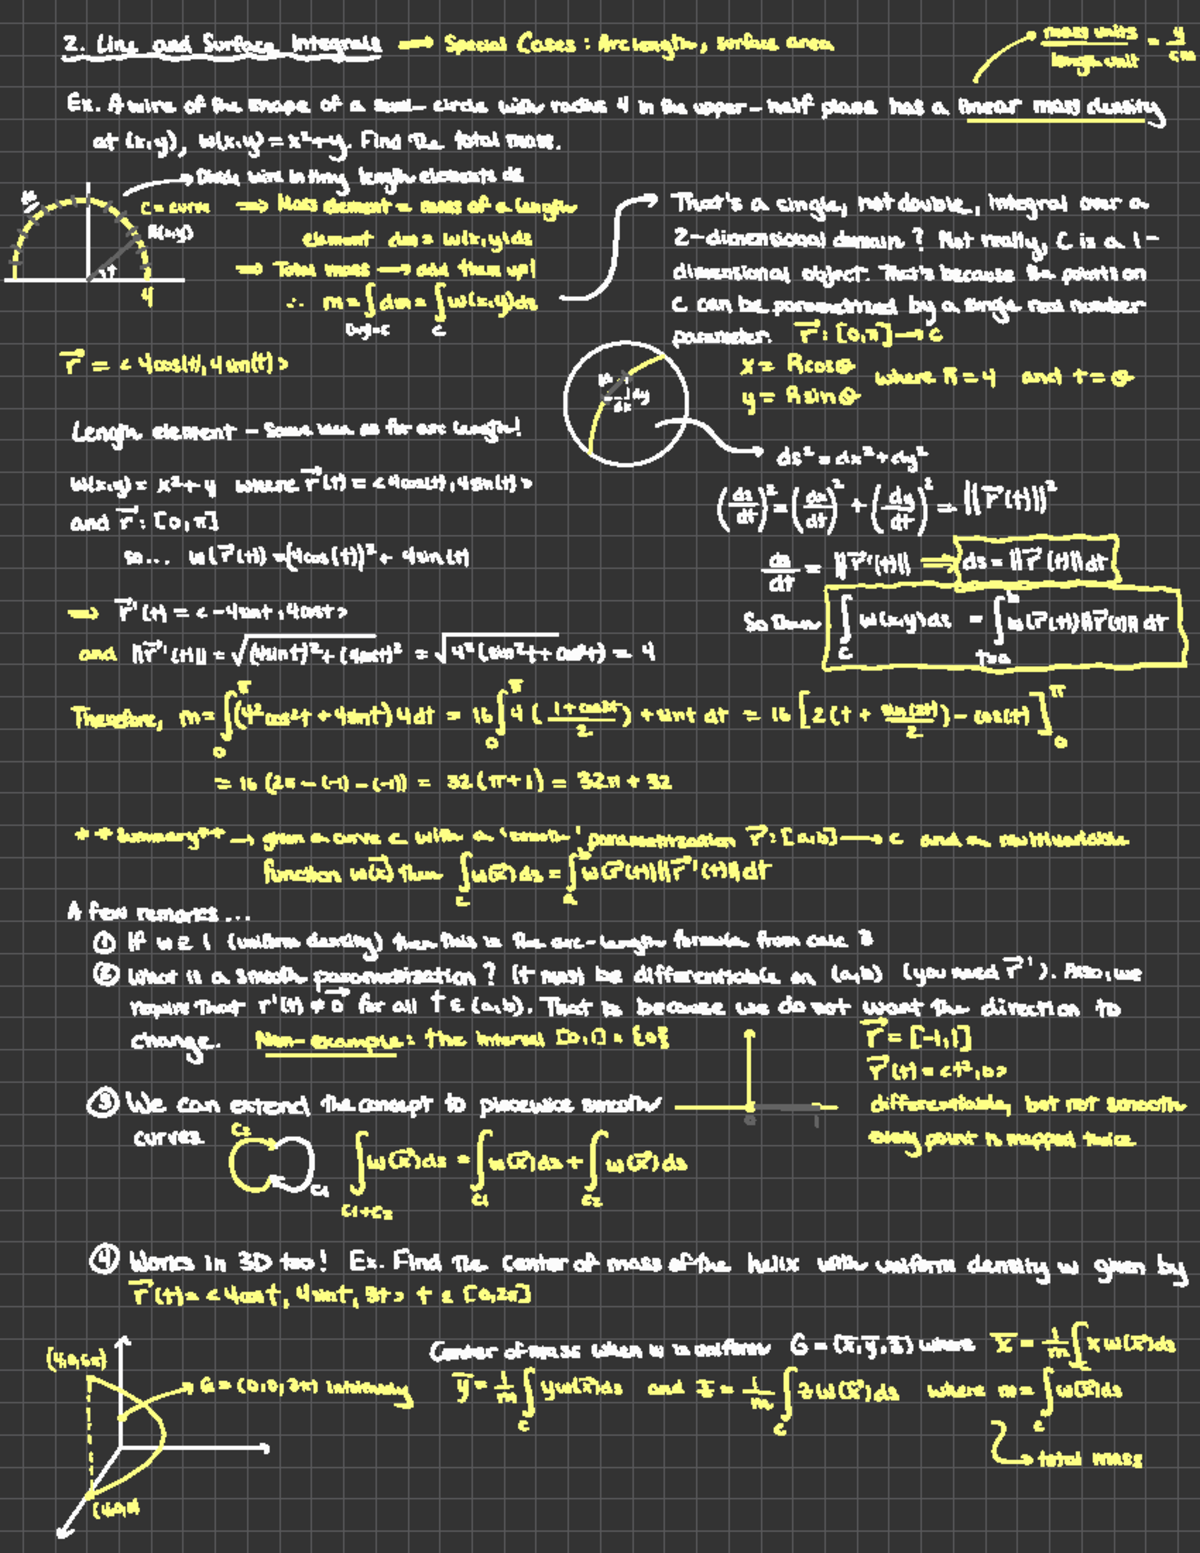 2. Line and Surface Integrals ⟹ Special Cases: Arclength, surface area
mass units / length unit = g / cm
Ex. A wire of the shape of a semi-circle with radius 4 in the upper-half plane has a linear mass density
at (x,y), w(x,y) = x² + y. Find the total mass.
→ Divide wire in tiny length elements ds
C = curve
4
⟹ Mass element = mass of a length
element dm = w(x,y)ds
⟹ Total mass → add them up!
∴ m = ∫ dm = ∫_C w(x,y)ds
That's a single, not double, integral over a
2-dimensional domain? Not really, C is a 1-
dimensional object. That's because the points on
C can be parametrized by a single real number
parameter. r⃗ : [0,π] → C
x = Rcosθ
y = Rsinθ where R = 4 and t = θ
r⃗ = <4cos(t), 4sin(t)>
dy
dx
Length element - Same idea as for arc length!
ds² = dx² + dy²
w(x,y) = x² + y where r⃗(t) = <4cos(t), 4sin(t)>
and r⃗ : [0,π]
(ds/dt)² = (dx/dt)² + (dy/dt)² = ||r⃗'(t)||²
so... w(r⃗(t)) = (4cos(t))² + 4sin(t)
ds/dt = ||r⃗'(t)|| ⟹ ds = ||r⃗'(t)||dt
⟹ r⃗'(t) = <-4sint, 4cost>
So then ∫_C w(x,y)ds = ∫_{t=a}^b w(r⃗(t))||r⃗'(t)|| dt
and ||r⃗'(t)|| = √(4sint)² + (4cost)² = √4²(sin²t + cos²t) = 4
Therefore, m = ∫_0^π (4²cos²t + 4sint) 4dt = 16 ∫_0^π 4 (1+cos2t / 2) + sint dt = 16 [2(t + sin(2t)/2) - cos(t)]_0^π
= 16 (2π - (-1) - (-1)) = 32(π+1) = 32π + 32
**Summary** → given a curve C with a 'smooth' parametrization r⃗ : [a,b] → C and a multivariable
function w(x⃗) then ∫_C w(x⃗) ds = ∫_a^b w(r⃗(t))||r⃗'(t)|| dt
A few remarks...
① If w ≡ 1 (uniform density) then this is the arc-length formula from calc 3
② What is a smooth parametrization? It must be differentiable on (a,b) (you need r⃗'). Also, we
require that r'(t) ≠ 0⃗ for all t ∈ (a,b). That is because we do not want the direction to
change. Non-example: the interval [0,1] × {0}
r⃗ = [-1,1]
r⃗(t) = <t², 0>
differentiable, but not smooth
every point is mapped twice
0 1
③ We can extend the concept to piecewise smooth
curves
C2
C1
∫_{C1+C2} w(x⃗)ds = ∫_{C1} w(x⃗)ds + ∫_{C2} w(x⃗)ds
④ Works in 3D too! Ex. Find the center of mass of the helix with uniform density w given by
r⃗(t) = <4cost, 4sint, 3t> t ∈ [0,2π]
(4,0,6π)
→ G = (0,0,3π) intuitively
Center of mass when w is uniform G = (x̄, ȳ, z̄) where x̄ = 1/m ∫_C x w(x⃗)ds
ȳ = 1/m ∫_C y w(x⃗)ds and z̄ = 1/m ∫_C z w(x⃗)ds where m = ∫_C w(x⃗)ds
→ total mass
(4,0,0)